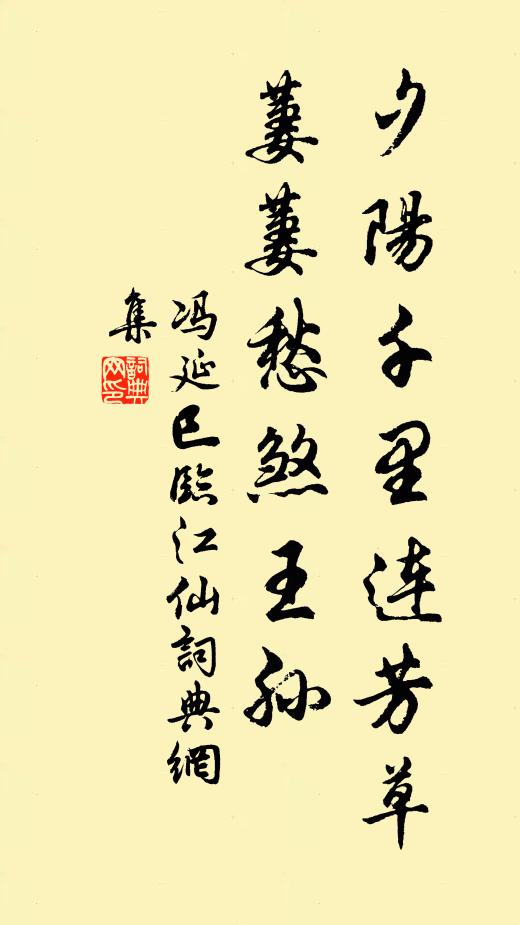 夕陽千里連芳草
萋萋愁煞王孫
冯延巳臨江仙詞典網
集
詞典
网印